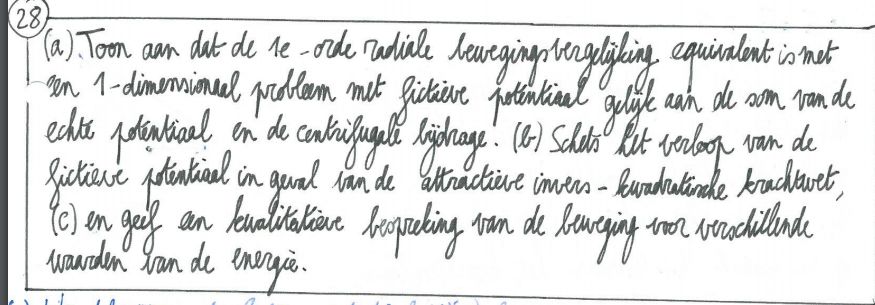 28
(a) Toon aan dat de 1e-orde radiale bewegingsvergelijking equivalent is met
een 1-dimensionaal probleem met fictieve potentiaal gelijk aan de som van de
echte potentiaal en de centrifugale bijdrage. (b) Schets het verloop van de
fictieve potentiaal in geval van de attractieve invers-kwadratische krachtwet,
(c) en geef een kwalitatieve bespreking van de beweging voor verschillende
waarden van de energie.